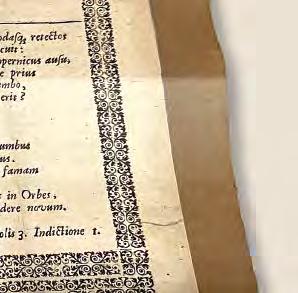 odasq, retectos
cuit:
pernicus ausu,
e prius
mbo,
eris?
umbus
us.
famam
in Orbes,
dere novum.
olis 3. Indictione 1.